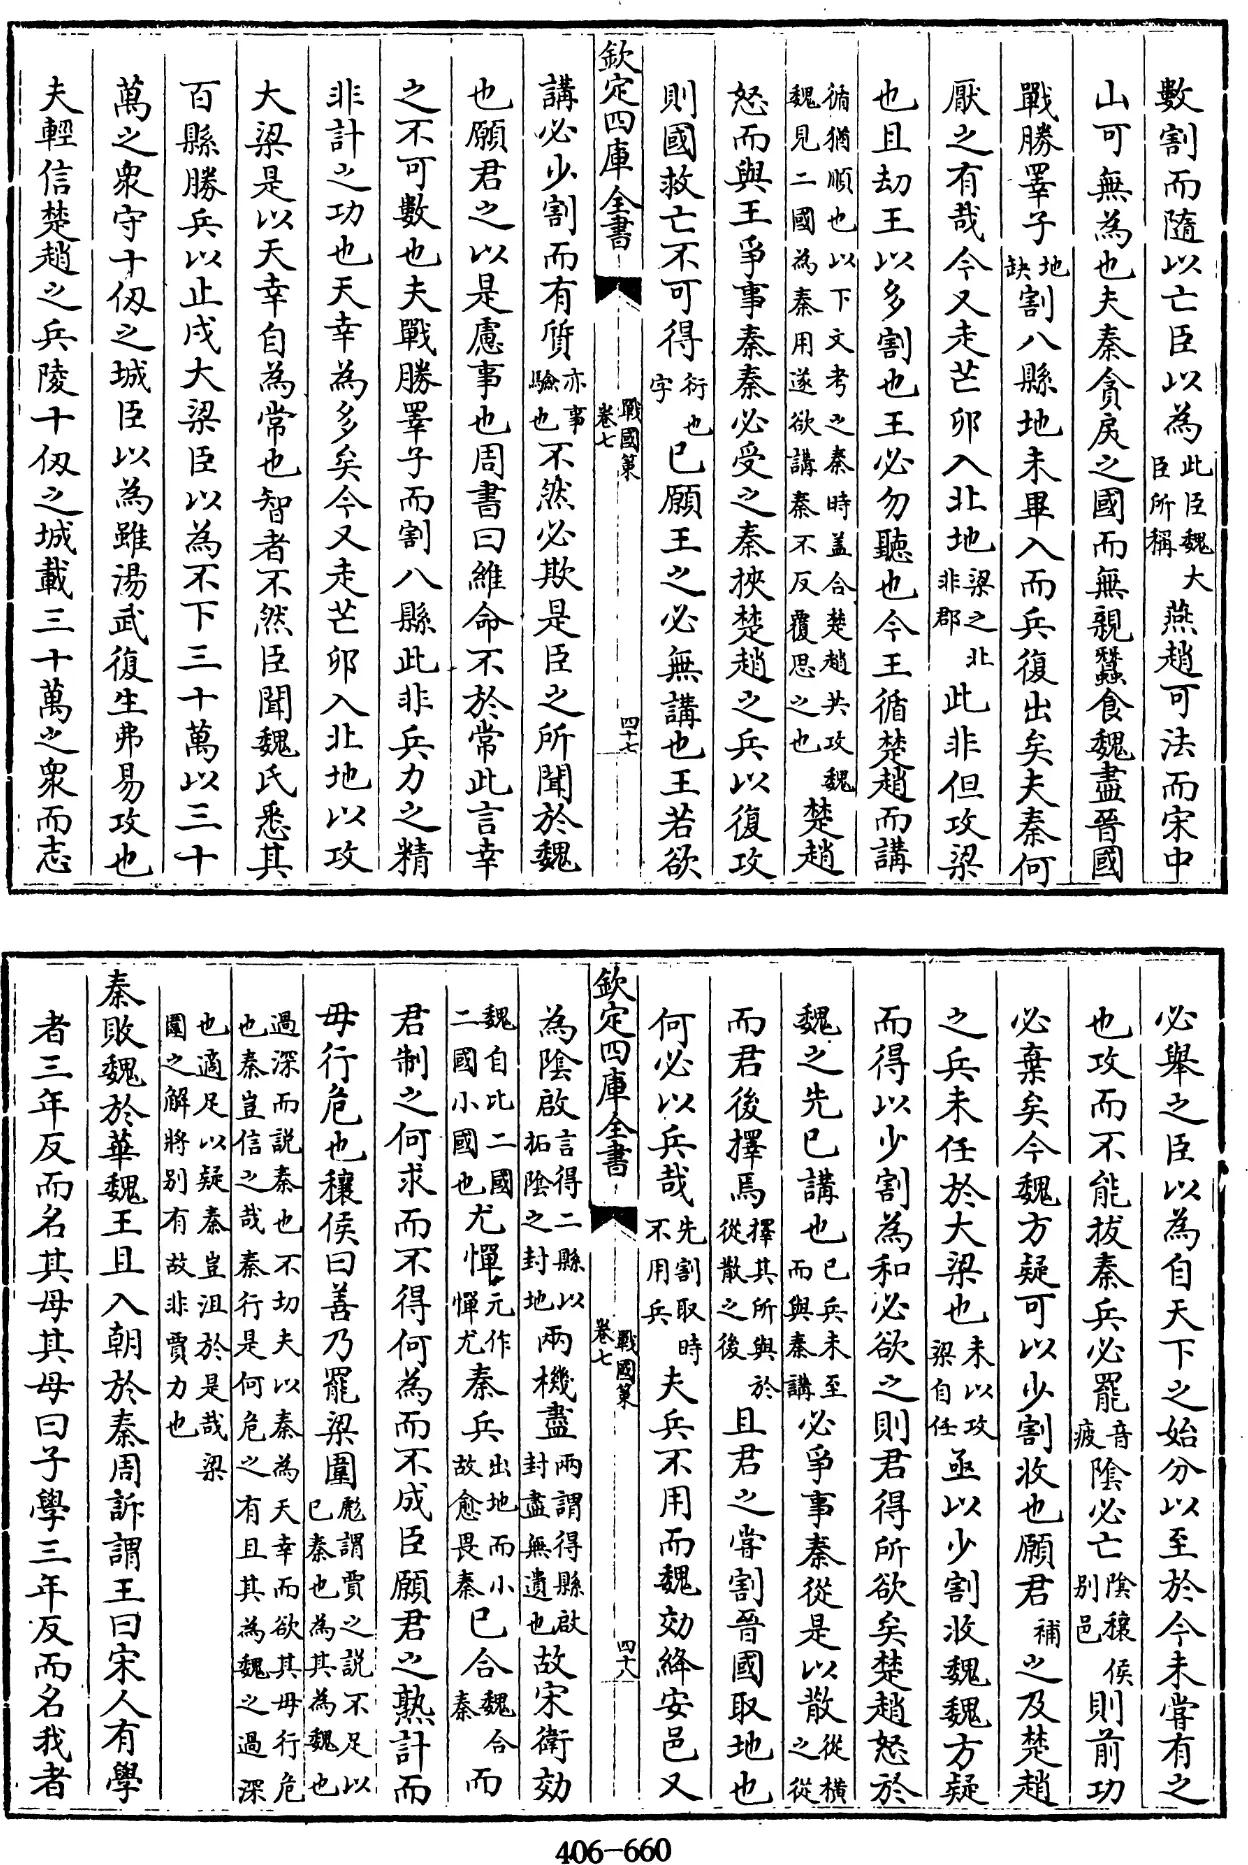 數割而隨以亡臣以為此臣魏大臣所稱燕趙可法而宋中
山可無為也夫秦貪戾之國而無親蠶食魏盡晉國
戰勝睪子地缺割八縣地未畢入而兵復出矣夫秦何
厭之有哉今又走芒卯入北地梁之北非郡此非但攻梁
也且劫王以多割也王必勿聽也今王循楚趙而講
循猶順也以下文考之秦時蓋合楚趙共攻魏魏見二國為秦用遂欲講秦不反覆思之也楚趙
怒而與王爭事秦秦必受之秦挾楚趙之兵以復攻
則國救亡不可得衍也字已願王之必無講也王若欲
欽定四庫全書
戰國策
卷七
四十七
講必少割而有質亦事驗也不然必欺是臣之所聞於魏
也願君之以是慮事也周書曰維命不於常此言幸
之不可數也夫戰勝睪子而割八縣此非兵力之精
非計之功也天幸為多矣今又走芒卯入北地以攻
大梁是以天幸自為常也智者不然臣聞魏氏悉其
百縣勝兵以止戍大梁臣以為不下三十萬以三十
萬之衆守十仭之城臣以為雖湯武復生弗易攻也
夫輕信楚趙之兵陵十仭之城載三十萬之衆而志
必舉之臣以為自天下之始分以至於今未甞有之
也攻而不能拔秦兵必罷音疲陰必亡陰穰侯別邑則前功
必棄矣今魏方疑可以少割收也願君補之及楚趙
之兵未任於大梁也未以攻梁自任亟以少割收魏魏方疑
而得以少割為和必欲之則君得所欲矣楚趙怒於
魏之先已講也已兵未至而與秦講必爭事秦從是以散從橫之從
而君後擇焉擇其所與於從散之後且君之甞割晉國取地也
何必以兵哉先割取時不用兵夫兵不用而魏効絳安邑又
欽定四庫全書
戰國策
卷七
四十八
為陰啟言得二縣以拓陰之封地兩機盡兩謂得縣啟封盡無遺也故宋衛効
魏自比二國二國小國也尤憚元作憚尤秦兵出地而小故愈畏秦已合魏合秦而
君制之何求而不得何為而不成臣願君之熟計而
毋行危也穰侯曰善乃罷梁圍彪謂賈之說不足以已秦也為其為魏也
過深而説秦也不切夫以秦為天幸而欲其毋行危也秦豈信之哉秦行是何危之有且其為魏之過深
也適足以疑秦豈沮於是哉梁圍之解將別有故非賈力也
秦敗魏於華魏王且入朝於秦周訢謂王曰宋人有學
者三年反而名其母其母曰子學三年反而名我者
406-660